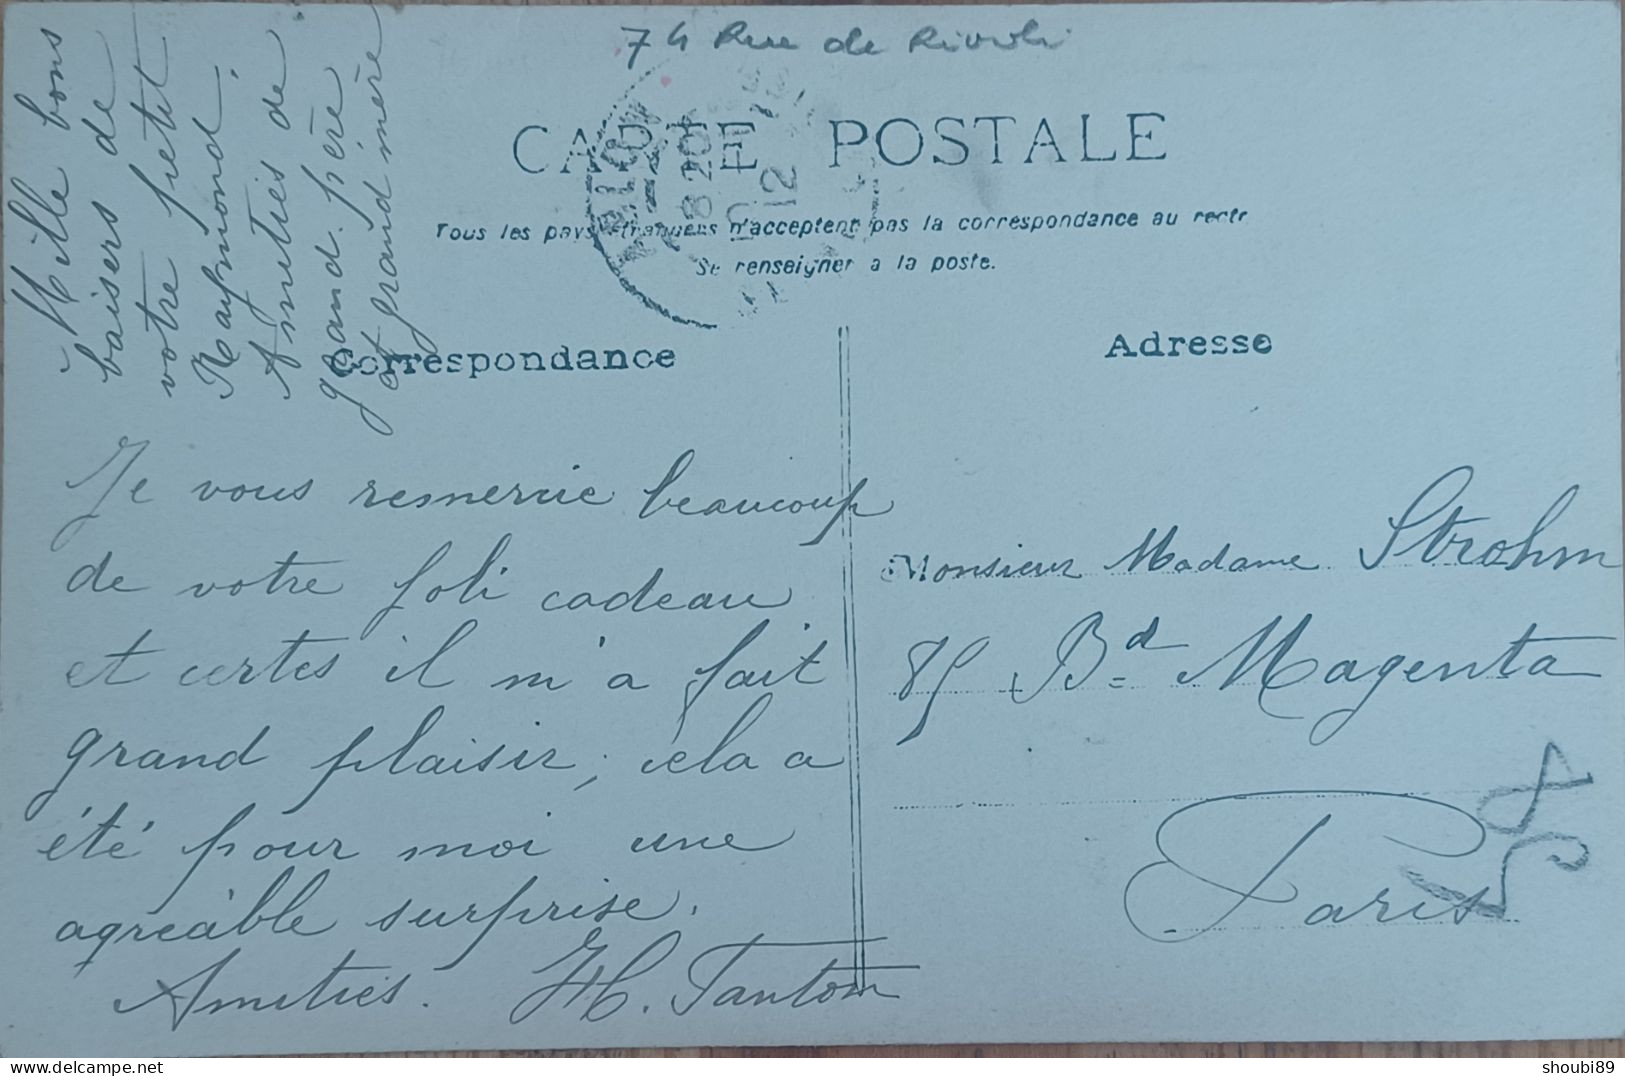 74 Rue de Rivoli
CARTE POSTALE
Tous les pays étrangers n'acceptent pas la correspondance au recto
Se renseigner à la poste.
PARIS
8 20
12
Mille bons
baisers de
votre petit
Raymond.
Amitiés de
grand. père
et grand mère
Correspondance
Je vous remercie beaucoup
de votre joli cadeau
et certes il m'a fait
grand plaisir; cela a
été pour moi une
agréable surprise.
Amitiés. H. Tantom
Adresse
Monsieur Madame Strohm
85 Bd Magenta
Paris
shoubi89